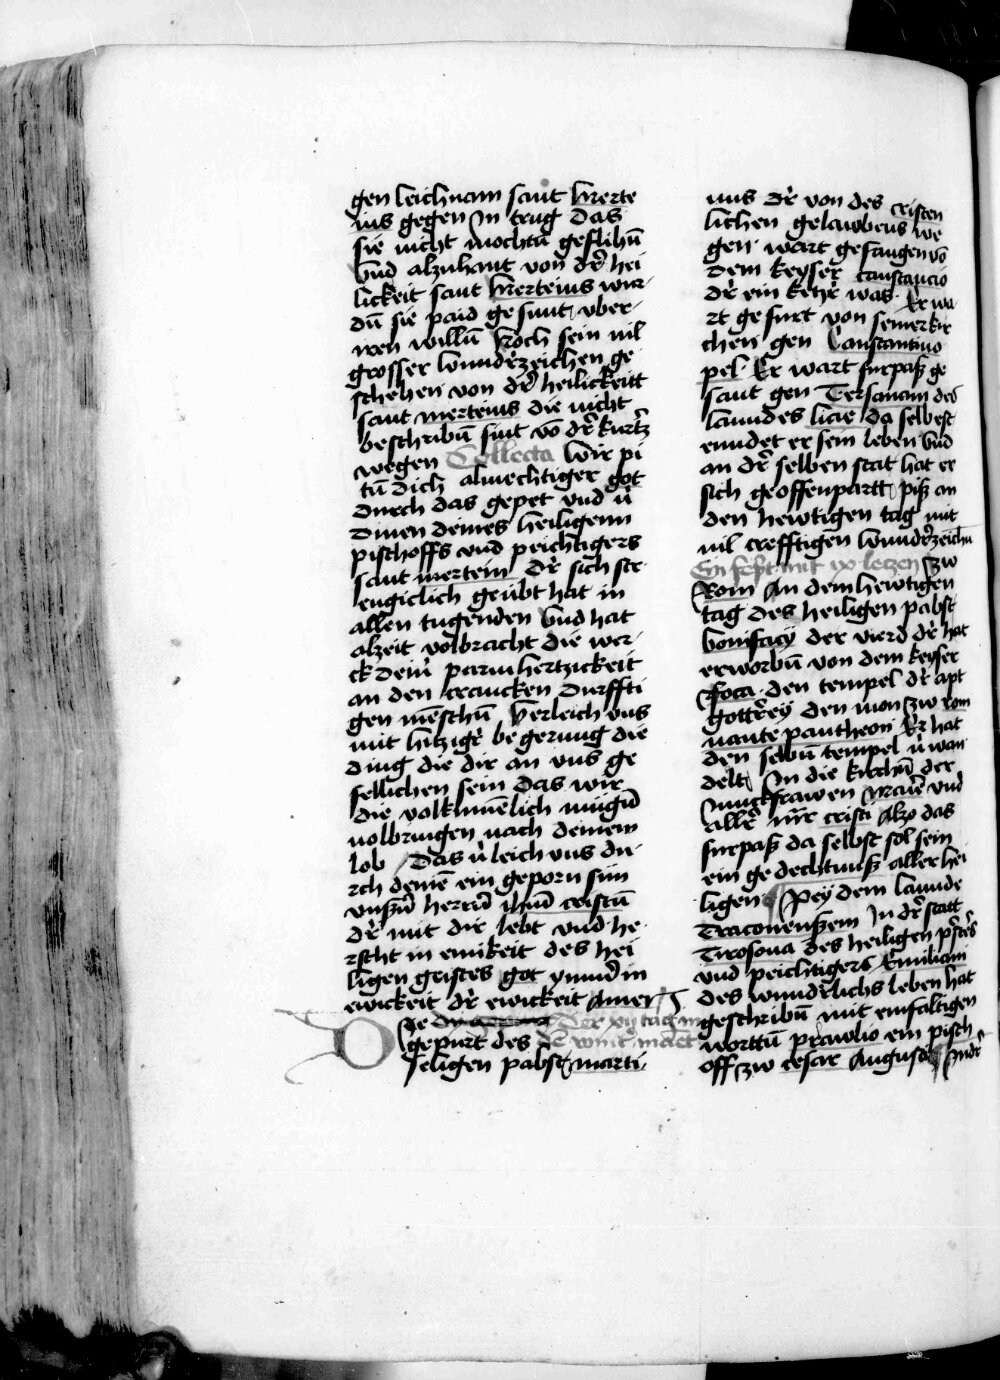 gen leichnam sant Merte
ins gegen In trug das
sie nicht mochtū geflihū
vnd alzuhant von dr̄ hei
lickeit sant Merteins wur
dū sie paid gesunt, vber
iren willū Noch sein uil
grosser wundr̄zeichen ge
schehen von dr̄ heilickeitt
sant merteins die nicht
beschribū sint vō dr̄ kurtz
wegen Collecta Wir pi
tū dich almechtiger got
durch das gepet vnd ū
dinen deines heiligenn
pischoffs vnd peichtigers
sant mertein dr̄ sich ste
tigiclich geubt hat in
allen tugenden vnd hat
alzeit volbracht die wer
ck dein̄ parmhertzickeit
an den crancken durffti
gen mēschū Verleich vns
mit hitzigr̄ begerung die
ding die dir an vns ge
fellichen sein das wir
die volkumēlich mugū
uolbringen nach deinem
lob / Das ū leich vns du
rch deinē ein geporn sun
vnsrn̄ herrn̄ ihm̄ cristū
dr̄ mit dir lebt vnd he
rscht in einikeit des hei
ligen geistes got ymm̄ in
ewickeit dr̄ ewickeit Amen
Der xij tag in
de wint mact
gepurt des
seligen pabst marti
nus dr̄ von des cristen
lichen gelawbens we
gen wart gefangen vō
dem keyser constancio
dr̄ ein ketzr̄ was Er wa
rt gefurt von seiner kir
chen gen Constantino
pel Er wart furpaß ge
sant gen Tersonam des
lanndes licie da selbest
enndet er sein leben Vnd
an dr̄ selben stat hat er
sich geoffenpartt piß an
den hewtigen tag mit
uil crefftigen wundr̄zeichn
Ein fest mit ix letzen Zw
Rom An dem hewtigen
tag des heiligen pabst
bonifacij der vierd dr̄ hat
erworbū von dem keyser
foca den tempel dr̄ apt
gottr̄ey den man zw rom
nante pantheon Er hat
den selbū tempel ū wan
delt In die kirchū der
Junckfrawen Marie vnd
allr̄ mr̄r cristi Also das
furpaß da selbst sol sein
ein gedechtnuß aller hei
ligen Pey dem lannde
Traconenßem In dr̄ statt
Tirosona des heiligen pr̄sters
vnd peichtigers Emiliani
des wundr̄lichs leben hat
geschribū mit einfaltigen
worttū prawlio ein pisch
off zw cesar Auguste Indr̄